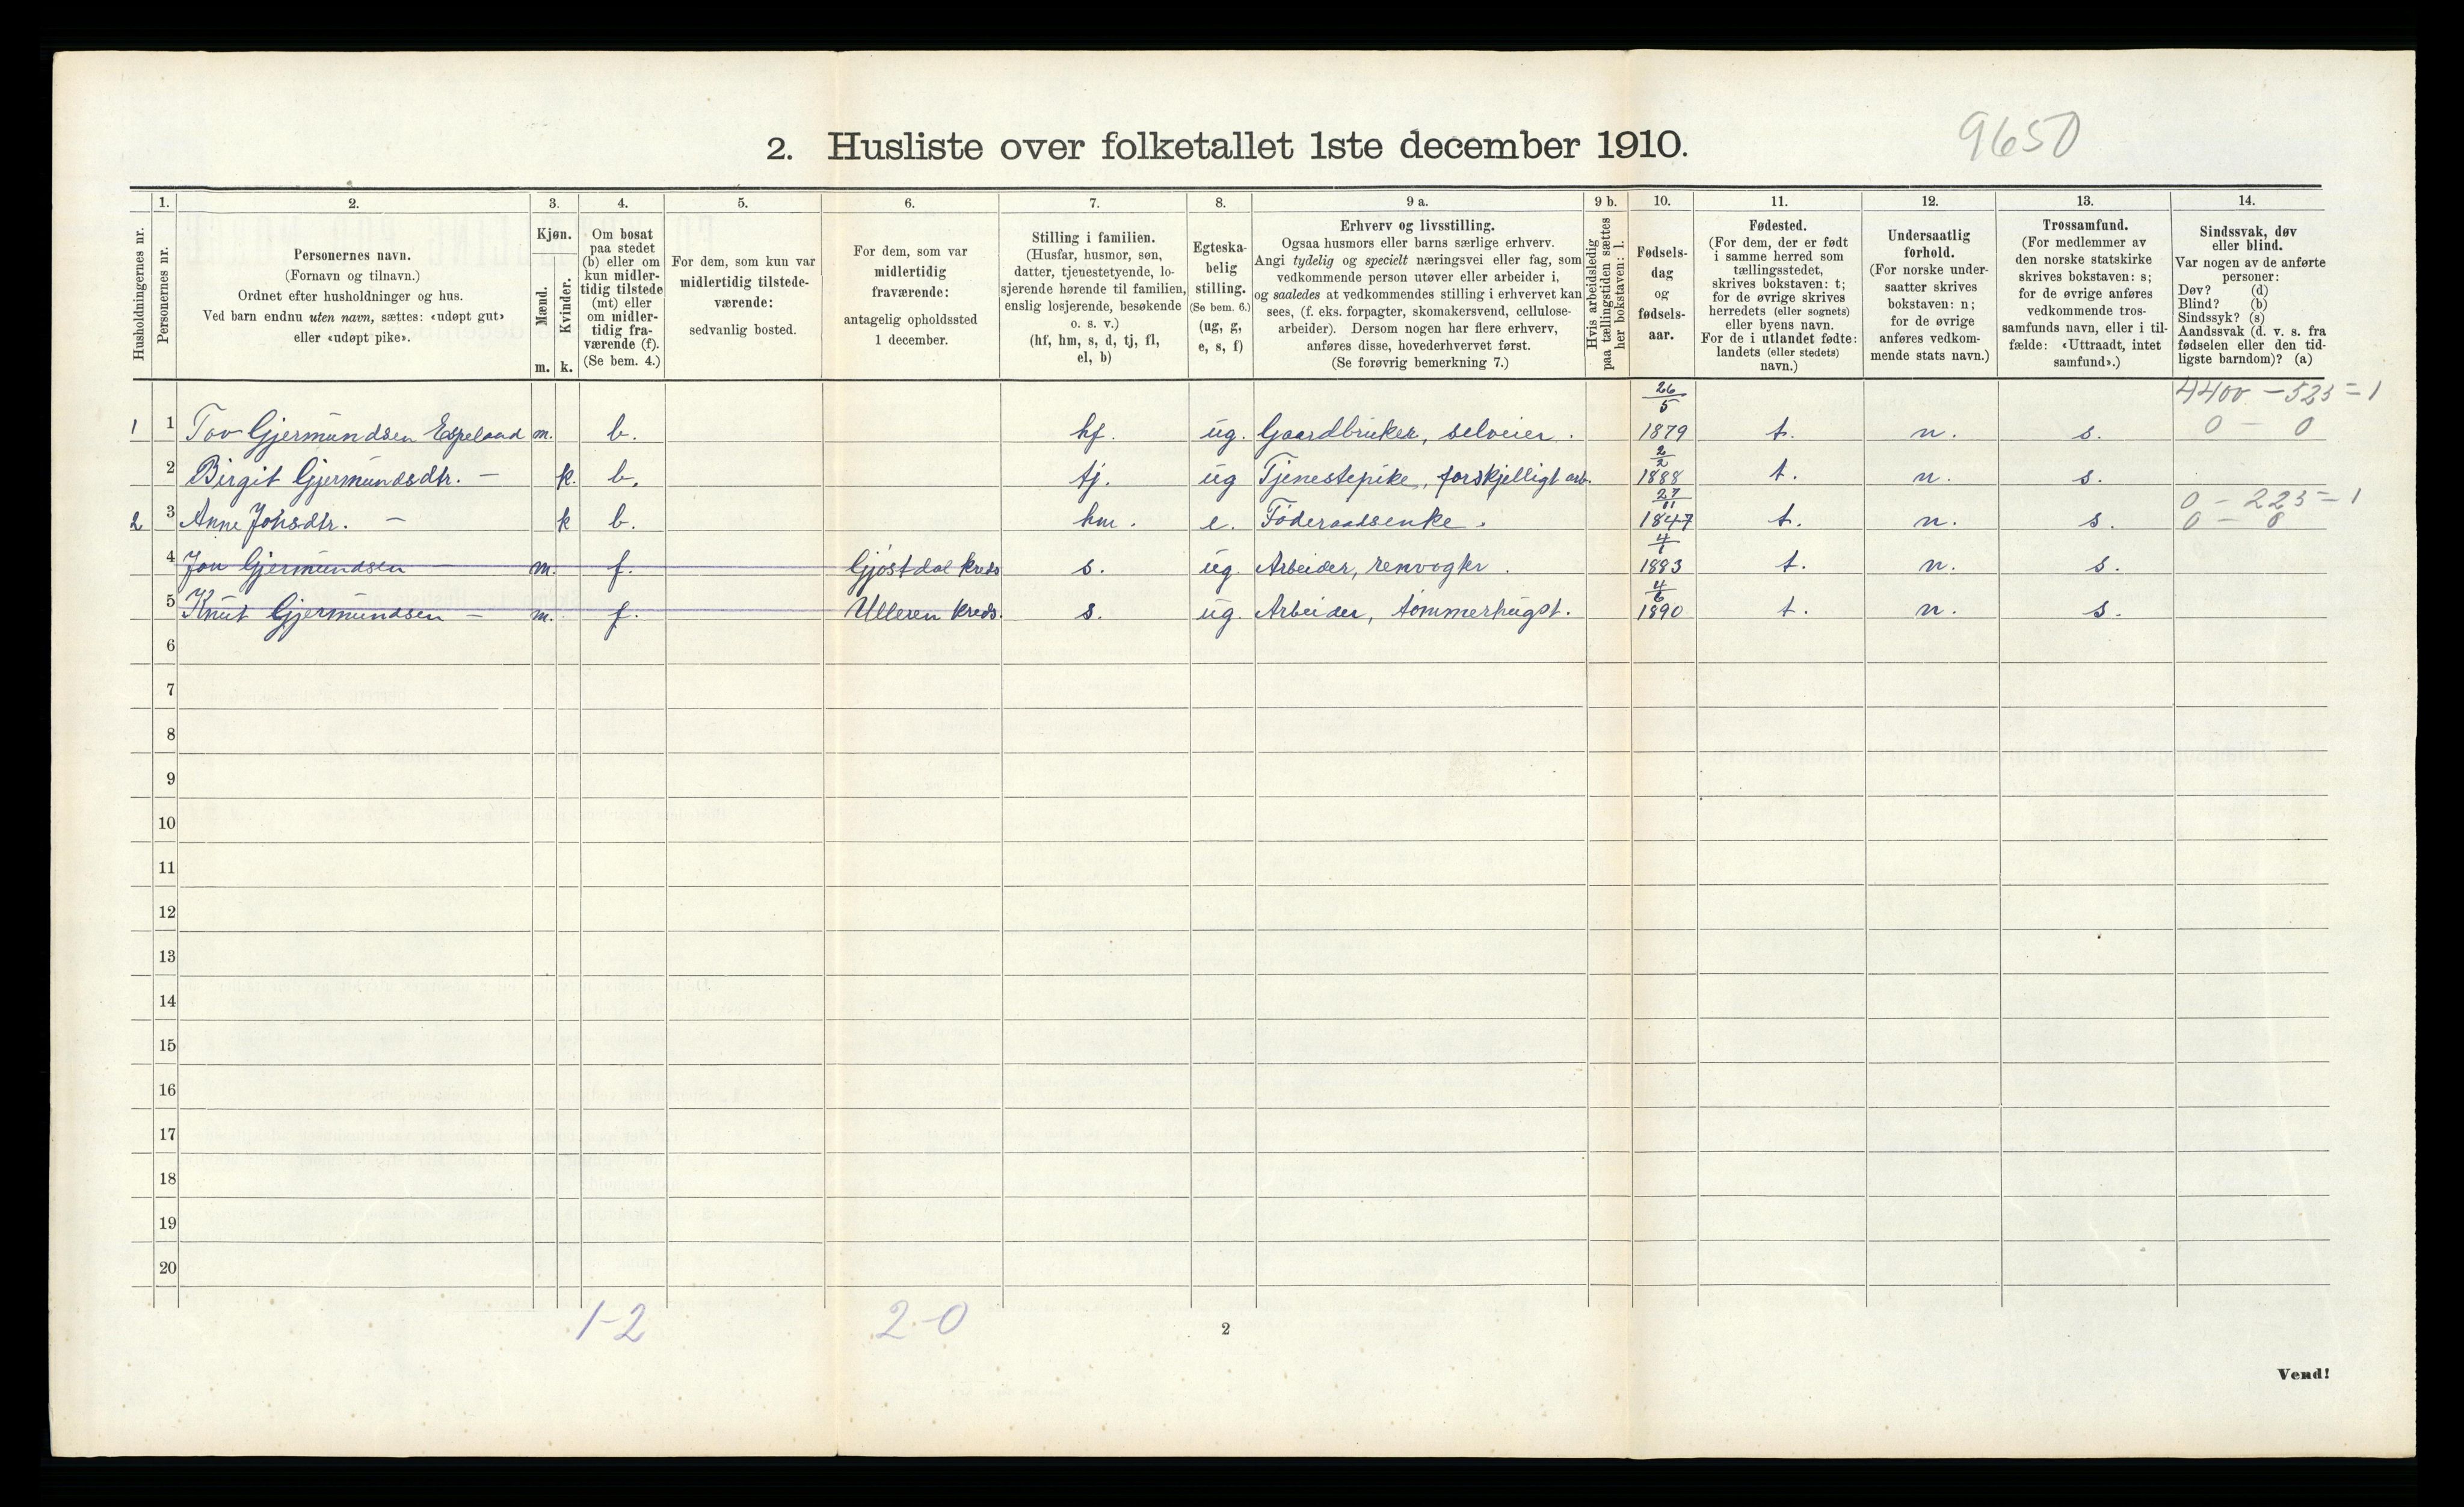 2. Husliste over folketallet 1ste december 1910.
9650
1. 2. 3. 4. 5. 6. 7. 8. 9 a. 9 b. 10. 11. 12. 13. 14.
Husholdningernes nr.
Personernes nr.
Personernes navn.
(Fornavn og tilnavn.)
Ordnet efter husholdninger og hus.
Ved barn endnu uten navn, sættes: «udøpt gut»
eller «udøpt pike».
Kjøn.
Mænd.
Kvinder.
m. k.
Om bosat
paa stedet
(b) eller om
kun midler-
tidig tilstede
(mt) eller
om midler-
tidig fra-
værende (f).
(Se bem. 4.)
For dem, som kun var
midlertidig tilstede-
værende:
sedvanlig bosted.
For dem, som var
midlertidig
fraværende:
antagelig opholdssted
1 december.
Stilling i familien.
(Husfar, husmor, søn,
datter, tjenestetyende, lo-
sjerende hørende til familien,
enslig losjerende, besøkende
o. s. v.)
(hf, hm, s, d, tj, fl,
el, b)
Egteska-
belig
stilling.
(Se bem. 6.)
(ug, g,
e, s, f)
Erhverv og livsstilling.
Ogsaa husmors eller barns særlige erhverv.
Angi tydelig og specielt næringsvei eller fag, som
vedkommende person utøver eller arbeider i,
og saaledes at vedkommendes stilling i erhvervet kan
sees, (f. eks. forpagter, skomakersvend, cellulose-
arbeider). Dersom nogen har flere erhverv,
anføres disse, hovederhvervet først.
(Se forøvrig bemerkning 7.)
Hvis arbeidsledig
paa tællingstiden sættes
her bokstaven: l.
Fødsels-
dag
og
fødsels-
aar.
Fødested.
(For dem, der er født
i samme herred som
tællingsstedet,
skrives bokstaven: t;
for de øvrige skrives
herredets (eller sognets)
eller byens navn.
For de i utlandet fødte:
landets (eller stedets)
navn.)
Undersaatlig
forhold.
(For norske under-
saatter skrives
bokstaven: n;
for de øvrige
anføres vedkom-
mende stats navn.)
Trossamfund.
(For medlemmer av
den norske statskirke
skrives bokstaven: s;
for de øvrige anføres
vedkommende tros-
samfunds navn, eller i til-
fælde: «Uttraadt, intet
samfund».)
Sindssvak, døv
eller blind.
Var nogen av de anførte
personer:
Døv? (d)
Blind? (b)
Sindssyk? (s)
Aandssvak (d. v. s. fra
fødselen eller den tid-
ligste barndom)? (a)
4400 - 523 = 1
1 1 Tov Gjermundsen Espeland m. b. hf. ug. Gaardbruker, selveier. 26/5 1879 t. n. s. 0 - 0
2 Birgit Gjermundsdtr. — k. b. tj. ug Tjenestepike, forskjelligt arb. 2/2 1888 t. n. s.
0 - 223 = 1
2 3 Anne Johsdtr. — k b. hm. e. Föderaadsenke. 27/11 1847 t. n. s. 0 - 0
4 Jon Gjermundsen m. f. Gjøstdal kreds s. ug. Arbeider, renvogter. 4/1 1883 t. n. s.
5 Knut Gjermundsen — m. f. Ulleren kreds. s. ug. Arbeider, tømmerhugst. 4/6 1890 t. n. s.
6
7
8
9
10
11
12
13
14
15
16
17
18
19
20
1-2 2-0
2
Vend!